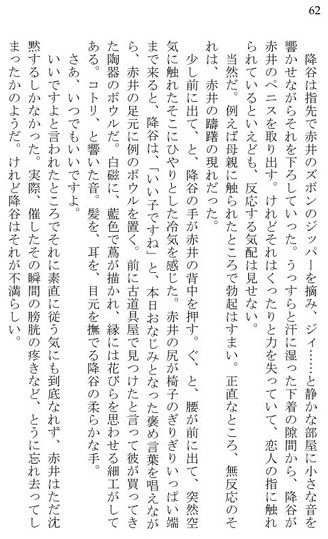 62
降谷は指先で赤井のズボンのジッパーを摘み、ジィ……と静かな部屋に小さな音を
響かせながらそれを下ろしていった。うっすらと汗に湿った下着の隙間から、降谷が
赤井のペニスを取り出す。けれどそれはくったりと力を失っていて、恋人の指に触れ
られているといえども、反応する気配は見せない。
当然だ。例えば母親に触られたところで勃起はすまい。正直なところ、無反応のそ
れは、赤井の躊躇の現れだった。
少し前に出て、と、降谷の手が赤井の背中を押す。ぐ、と、腰が前に出て、突然空
気に触れたそこにひやりとした冷気を感じた。赤井の尻が椅子のぎりぎりいっぱい端
まで来ると、降谷は、「いい子ですね」と、本日おなじみとなった褒め言葉を唱えなが
ら、赤井の足元に例のボウルを置く。前に古道具屋で見つけたと言って彼が買ってき
た陶器のボウルだ。白磁に、藍色で蔦が描かれ、縁には花びらを思わせる細工がして
ある。コトリ、と響いた音。髪を、耳を、目元を撫でる降谷の柔らかな手。
さあ、いつでもいいですよ。
いいですよと言われたところでそれに素直に従う気にも到底なれず、赤井はただ沈
黙するしかなかった。実際、催したその瞬間の膀胱の疼きなど、とうに忘れ去ってし
まったかのようだ。けれど降谷はそれが不満らしい。